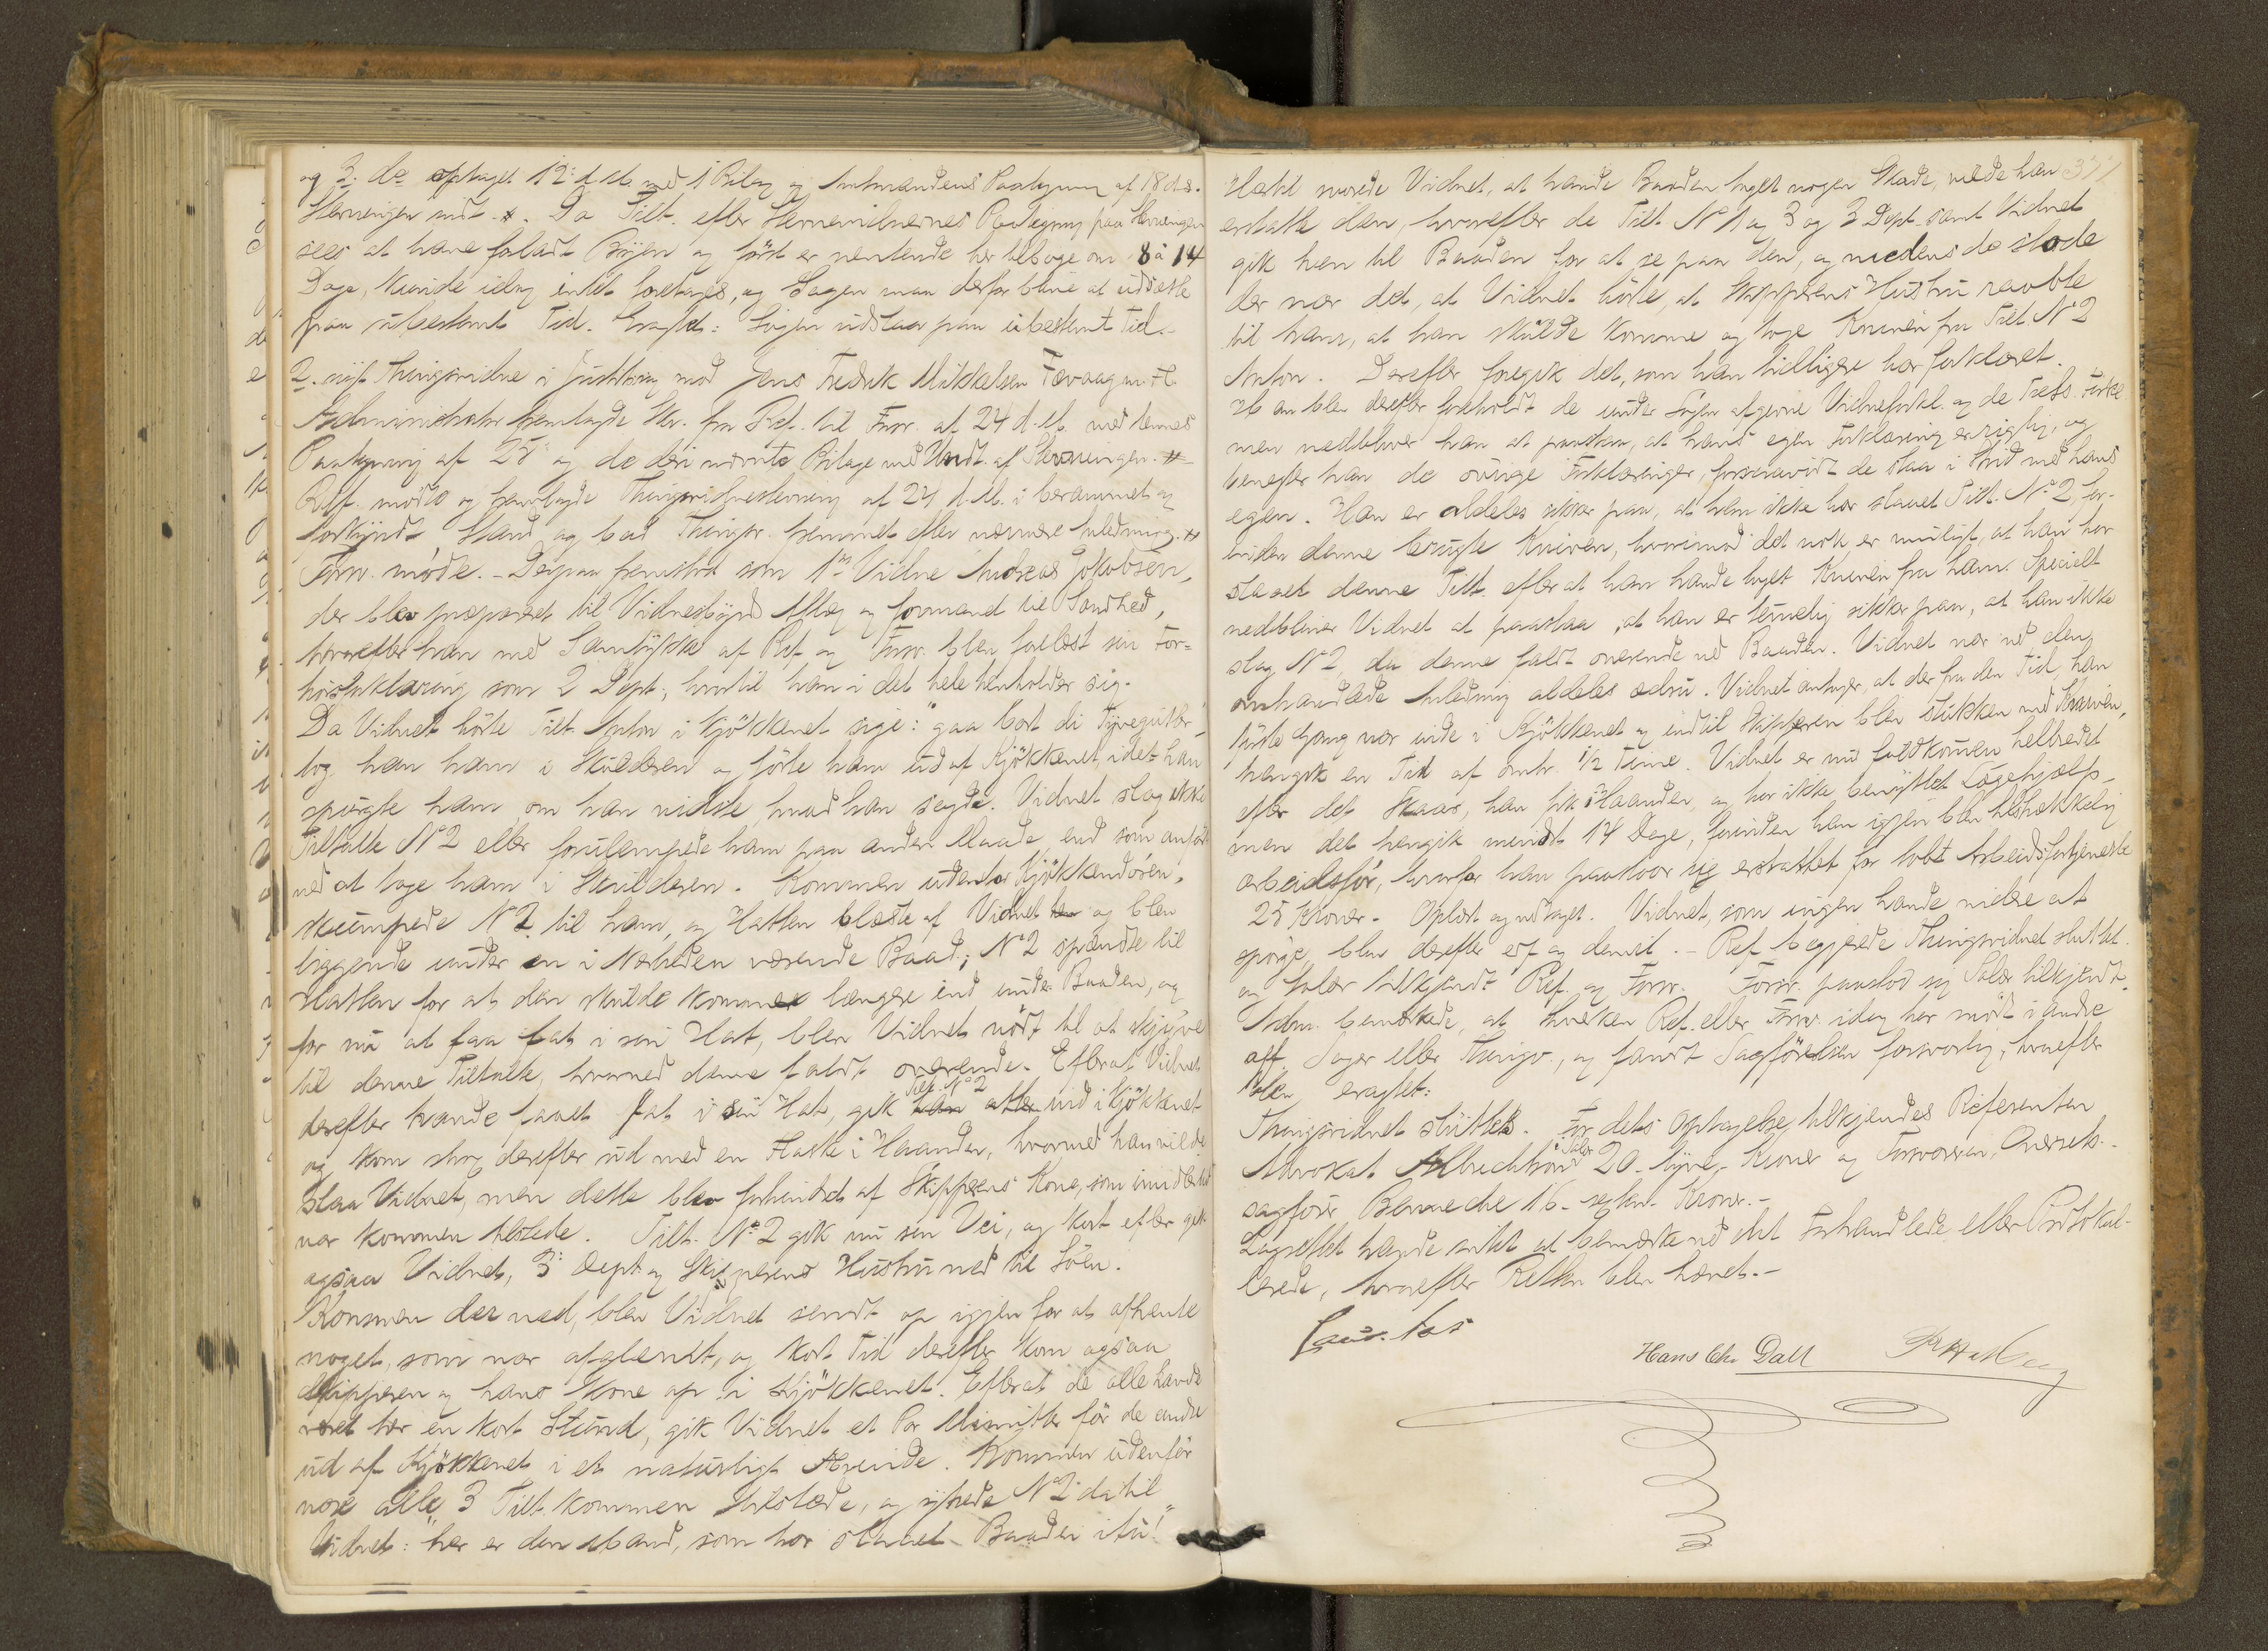 og 3. de optaget 12 d. M. med 1 Bilag og Amtmandens Paategning af 18 ds.
Stevningen indt. *. Da Tilt. efter Stevnevidnernes Paategning paa Stevningen
sees at have forladt Byen og først er ventende her tilbage om 8 à 14
Dage, kunde idag intet foretages, og Sagen maa derfor blive at udsætte
paa ubestemt Tid. Eragtet: Sagen udstaar paa ubestemt Tid.
2. nyt Thingsvidne i Justitssag mod Jens Fredrik Mikkelsen Tævaag m. fl.
Administrator fremlagde Skr. fra Ref. til Forsv. af 24 d. M. med dennes
Paategning af 25 og de deri nævnte Bilage med Undt. af Stevningen. *
Ref. mødte og fremlagde Thingsvidnestevning af 24 d. M. i berammet og
forkyndt Stand og bad Thingsv. fremmet efter nærmere Anledning. *
Forsv. mødte. - Derpaa fremstod som 1ste Vidne Andreas Jakobsen,
der blev præpareret til Vidnesbyrds Aflæg og formanet til Sandhed,
hvorefter han med Samtykke af Ref. og Forsv. blev forelæst sin For-
hørsforklaring som 2 Dept., hvortil han i det hele henholder sig.
Da Vidnet hørte Tilt. Anton i Kjøkkenet sige: "gaa bort di Tyvegutter",
tog han ham i Skulderen og førte ham ud af Kjøkkenet, idet han
spurgte ham, om han vidste, hvad han sagde. Vidnet slog ikke
Tiltalte No 2 eller forulempede ham paa anden Maade, end som anført
ved at tage ham i Skulderen. Kommen udenfor Kjøkkendøren,
skumpede No 2 til ham, og Hatten blæste af Vidnet og blev
liggende under en i Nærheden værende Baad; No 2 spændte til
Hatten for at den skulde komme længere ind under Baaden, og
for nu at faa fat i sin Hat, blev Vidnet nødt til at skyve
til denne Tiltalte, hvorved denne faldt overende. Efterat Vidnet
derefter havde faaet fat i sin Hat, gik Tilt. No 2 ind i Kjøkkenet
og kom strax derefter ud med en Flaske i Haanden, hvormed han vilde
slaa Vidnet, men dette blev forhindret af Skipperens Kone, som imidlertid
var kommen tilstede. Tilt. No 2 gik nu sin Vei, og kort efter gik
ogsaa Vidnet, 3 Dept. og Skipperens Hustru ned til Søen.
Kommen der ned, blev Vidnet sendt op igjen for at afhente
noget, som var afglemt, og kort Tid derefter kom ogsaa
Skipperen og hans Kone op i Kjøkkenet. Efterat de alle havde
været her en kort Stund, gik Vidnet et Par Minutter før de andre
ud af Kjøkkenet i et naturligt Ærinde. Kommen udenfor
vare alle 3 Tilt. kommen tilstede, og ytrede No 2 da til
Vidnet: "her er den Mand, som har slaaet Baaden itu!"
Hertil svarede Vidnet, at havde Baaden taget nogen Skade, vilde han
erstatte den, hvorefter de Tilt. No 1 og 3 og 3 Dept. samt Vidnet
gik hen til Baaden for at se paa den, og medens de stode
der var det, at Vidnet hørte, at Skipperens Hustru raabte
til ham, at han skulde komme og tage Kniven fra Tilt. No 2
Anton. Derefter foregik det, som han tidligere har forklaret.
Han blev derefter foreholdt de under Sagen afgivne Vidneforkl. og de Tilts. Forkl.
men vedbliver han at paastaa, at hans egen Forklaring er rigtig, og
benegter han de øvrige Forklaringer, forsaavidt de staa i Strid med hans
egen. Han er aldeles sikker paa, at han ikke har slaaet Tilt. No 2, for-
inden denne brugte Kniven, hvorimod det nok er muligt, at han har
slaaet denne Tilt. efterat han havde taget Kniven fra ham. Specielt
vedbliver Vidnet at paastaa, at han er temmelig sikker paa, at han ikke
slog No 2, da denne faldt overende ved Baaden. Vidnet var ved den
omhandlede Anledning aldeles ædru. Vidnet antager, at der fra den Tid, han
første Gang var inde i Kjøkkenet og indtil Skipperen blev stukken med Kniven,
hengik en Tid af omtr. 1/2 Time. Vidnet er nu fuldkommen helbredet
efter det Saar, han fik i Haanden, og har ikke benyttet Lægehjælp,
men det hengik mindst 14 Dage, forinden han igjen blev tilstrækkelig
arbeidsfør, hvorfor han paastaar sig erstattet for tabt Arbeidsfortjeneste
25 Kroner. Oplæst og vedtaget. Vidnet, som ingen havde videre at
spørge, blev derefter edf. og demit. - Ref. begjærede Thingsvidnet sluttet
og Salær tilkjendt Ref. og Forsv. Forsv. paastod sig Salær tilkjendt.
Adm. bemærkede, at hverken Ref. eller Forsv. idag har mødt i andre
off. Sager eller Thingsv., og fandt Sagførelsen forsvarlig, hvorefter
blev eragtet:
Thingsvidnet sluttes. For dets Optagelse tilkjendes Referenten
Advokat Albrechtson i Salær 20 - tyve - Kroner og Forsvareren, Overrets-
sagfører Benneche 16 - sexten - Kroner. -
Lagrettet havde intet at bemærke ved det Forhandlede eller Protokol-
lerede, hvorefter Retten blev hævet. -
Hans Chr. Dall